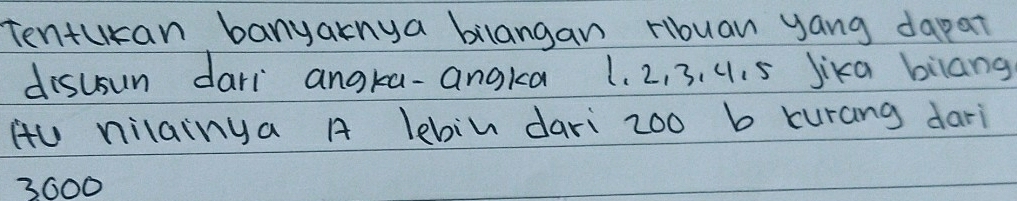 Tentukan banyaknya bilangan ribuan yang dapat
disusun dari angka-angka 1.2,3,4,5 Jika bilang
itu nilainya A lebih dari 200 b kurang dari
3000